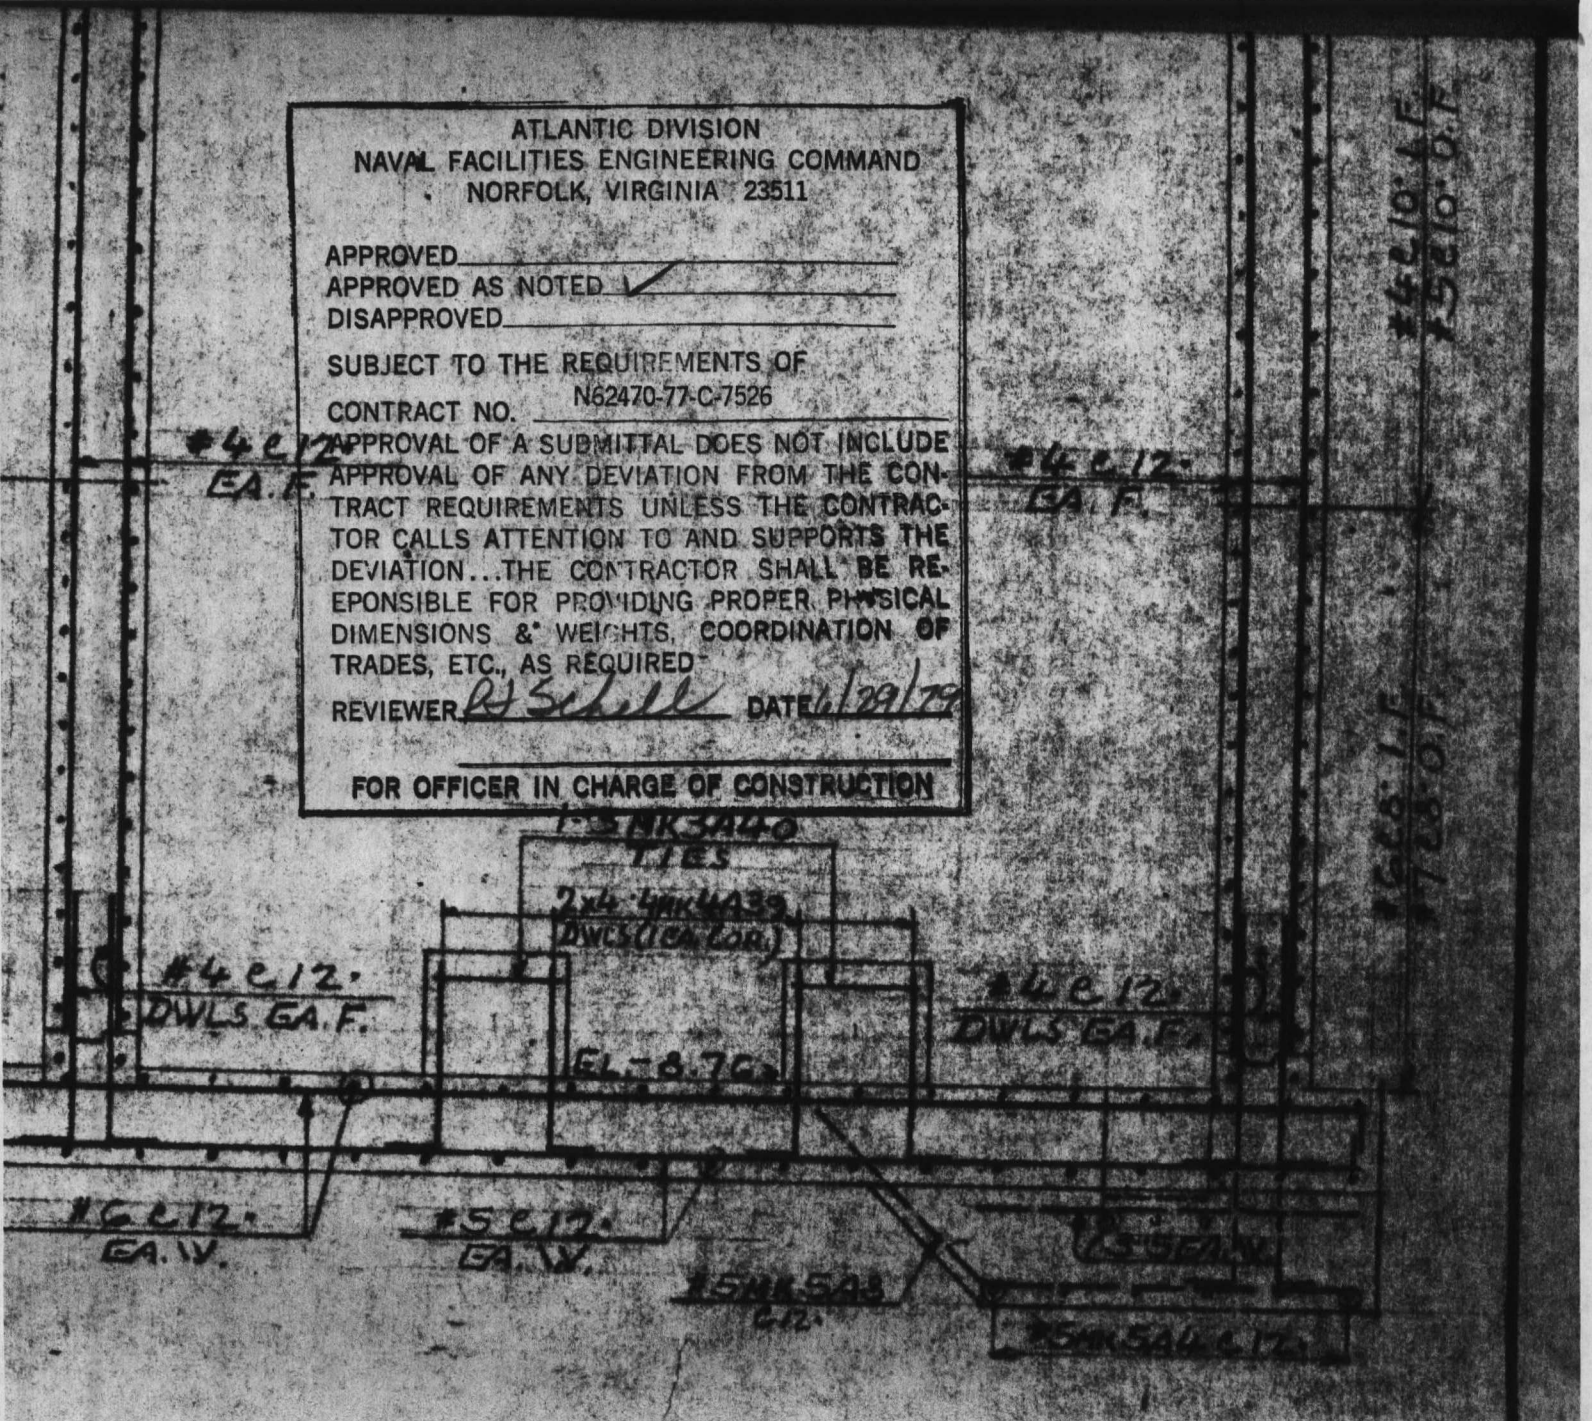 ATLANTIC DIVISION
NAVAL FACILITIES ENGINEERING COMMAND
NORFOLK, VIRGINIA 23511
APPROVED
APPROVED AS NOTED ✓
DISAPPROVED
SUBJECT TO THE REQUIREMENTS OF
N62470-77-C-7526
CONTRACT NO.
APPROVAL OF A SUBMITTAL DOES NOT INCLUDE
APPROVAL OF ANY DEVIATION FROM THE CON-
TRACT REQUIREMENTS UNLESS THE CONTRAC-
TOR CALLS ATTENTION TO AND SUPPORTS THE
DEVIATION...THE CONTRACTOR SHALL BE RE-
EPONSIBLE FOR PROVIDING PROPER PHYSICAL
DIMENSIONS & WEIGHTS, COORDINATION OF
TRADES, ETC., AS REQUIRED
REVIEWER RJ Schell DATE 6/29/79
FOR OFFICER IN CHARGE OF CONSTRUCTION
#4@12"
EA. F.
#4@12"
EA. F.
#4@10" I.F.
#5@10" O.F.
#6@8" I.F.
#7@8" O.F.
1-3MK3A40
TIES
2x4-4MK4A39
DWLS (1 EA. COR.)
#4@12"
DWLS EA. F.
#4@12"
DWLS EA. F.
EL.-8.76
#6@12"
EA. W.
#5@12"
EA. W.
#5MK5A3
@12"
EA. W.
#5MK5A4@12"